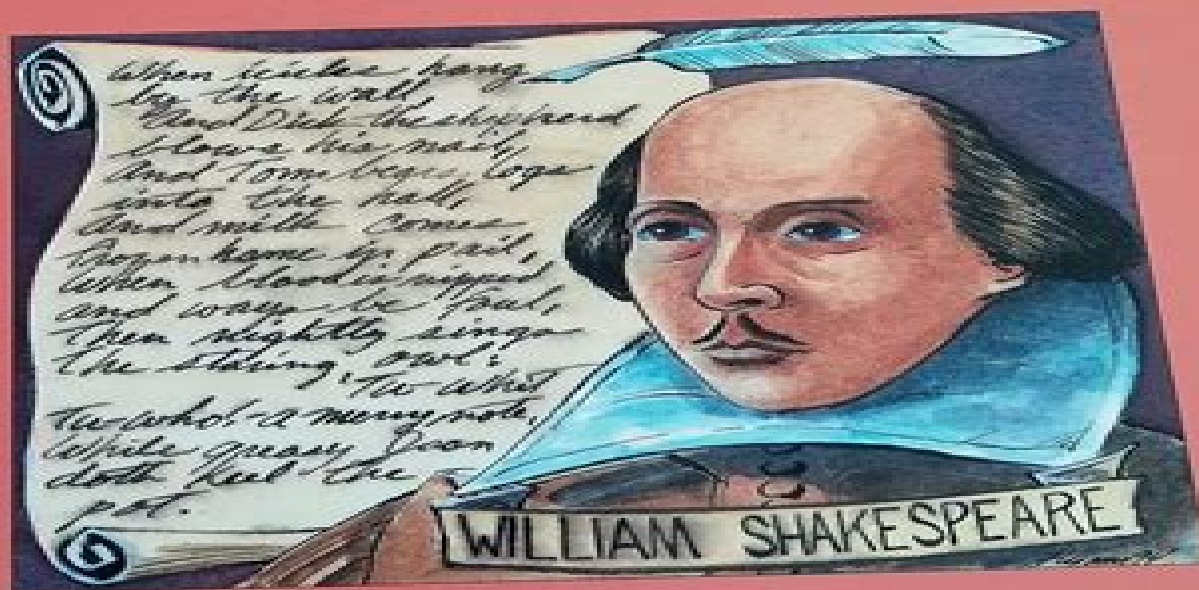 When icicles hang
by the wall
And Dick the shepherd
blows his nail,
And Tom bears logs
into the hall,
And milk comes
frozen home in pail,
When blood is nipped
and ways be foul,
Then nightly sings
the staring owl:
Tu whit
tu who! a merry note,
While greasy Joan
doth keel the
pot.
WILLIAM SHAKESPEARE